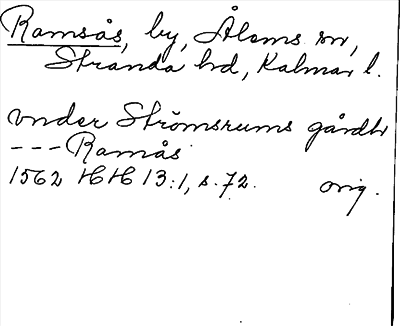 Ramsås, by, Ålems sn,
Stranda hd, Kalmar l.
vnder Strömsrums gårdh
--- Ramås
1562 HH 13:1, s. 72. orig.